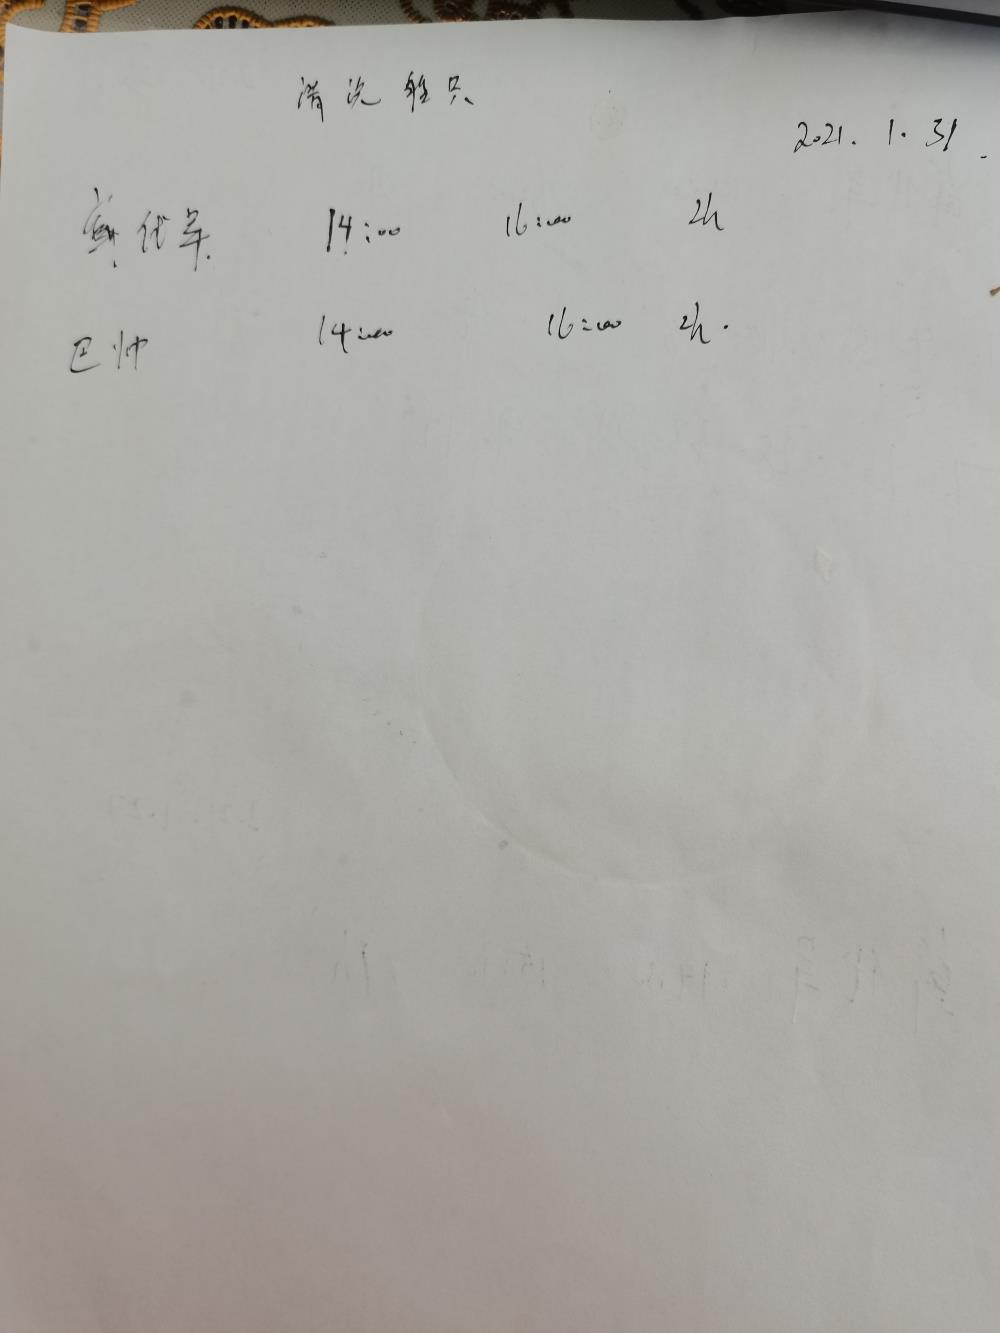 清洗船只
2021. 1. 31.
代军 14:00 16:00 2h
巴帅 14:00 16:00 2h.